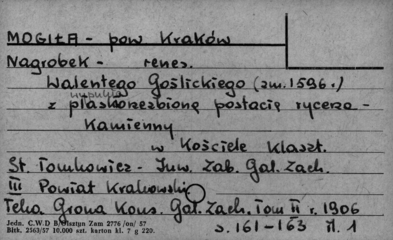 MOGIŁA - pow Kraków
Nagrobek - renes.
Walentego Goślickiego (zm. 1596.)
z płaskorzeźbioną postacią rycerza -
kamienny
w Kościele klaszt.
St. Tomkowicz - Inw. Zab. Gal. Zach.
III Powiat Krakowski
Teka Grona Kons. Gal. Zach. Tom II r. 1906
s. 161-163 il. 1
Jedn. C.W.D B/Olsztyn Zam 2776 /on/ 57
Bitk. 2563/57 10.000 szt. karton kl. 7 g 220.